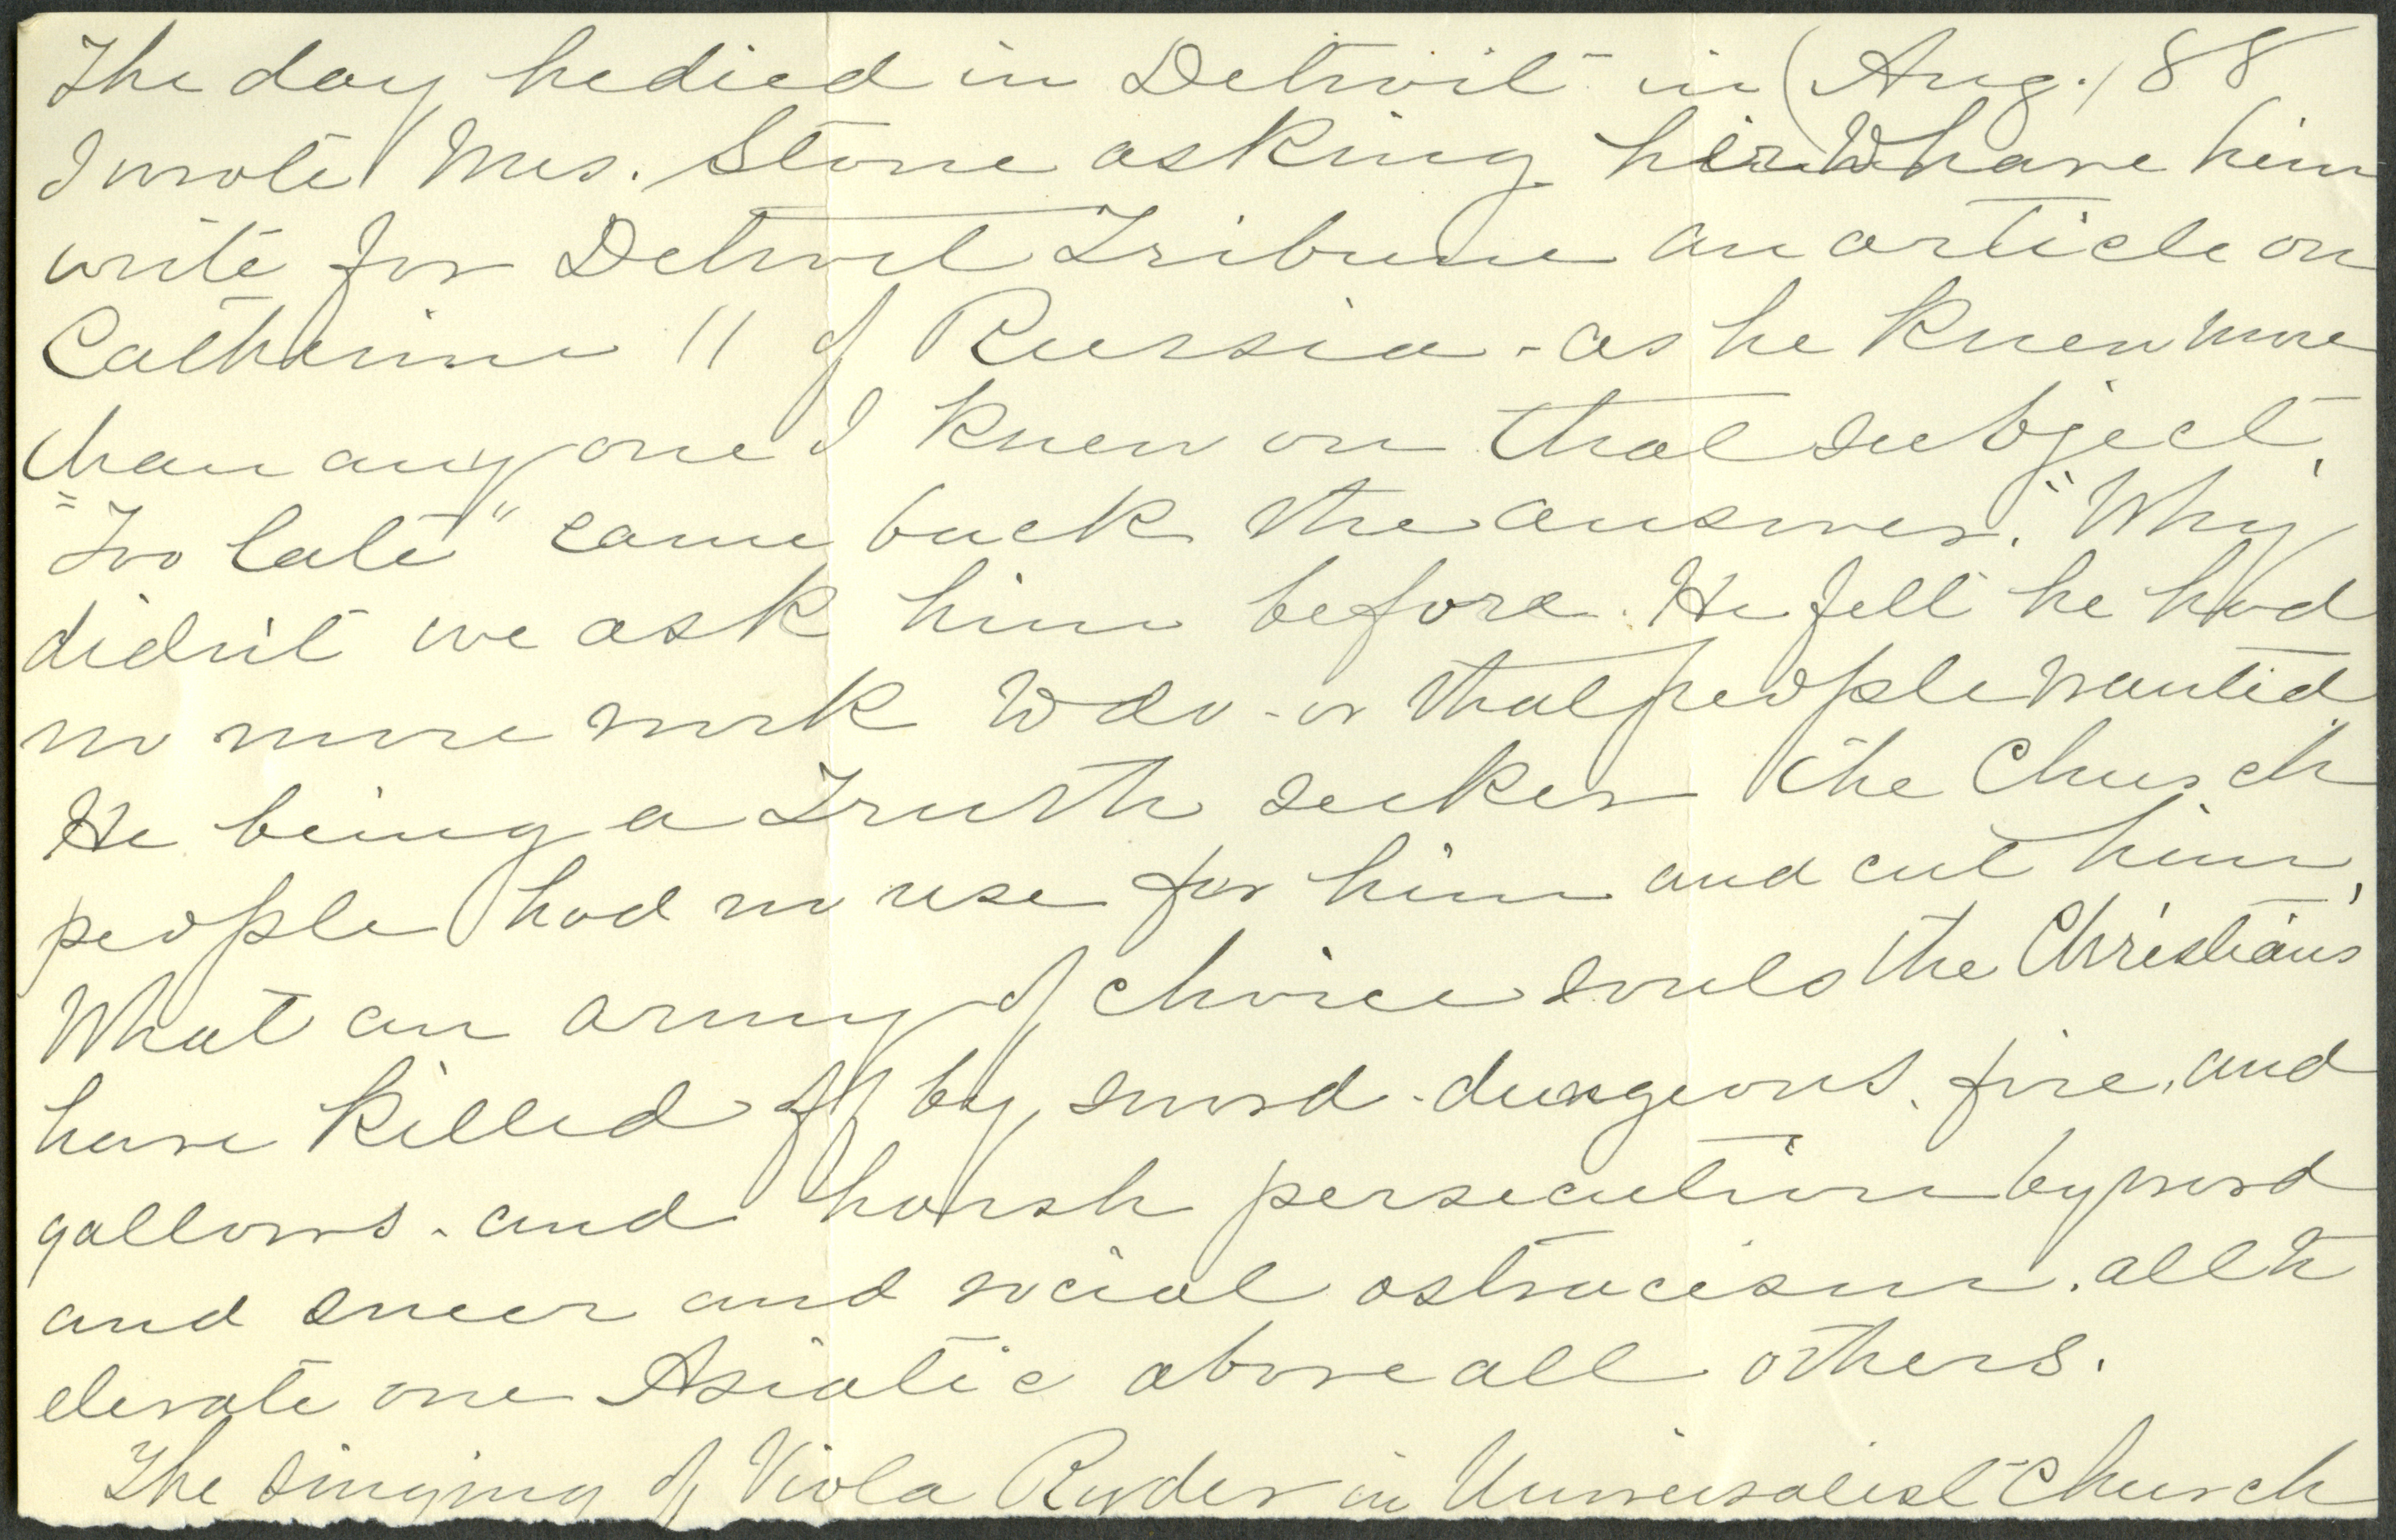 The day he died in Detroit in (Aug. 88
I wrote Mrs. Stone asking her to have him
write for Detroit Tribune an article on
Catherine II of Russia - as he knew more
than any one I knew on that subject.
"Too late" came back the answer. "Why
didn't we ask him before. He felt he had
no more work to do - or that people wanted
He being a Truth seeker the Church
people had no use for him and cut him.
What an army of choice souls the Christians
have killed off by sword - dungeons, fire, and
gallows - and harsh persecution by word
and sneer and social ostracism. all to
elevate one Asiatic above all others.
The singing of Viola Ryder in Universalist Church